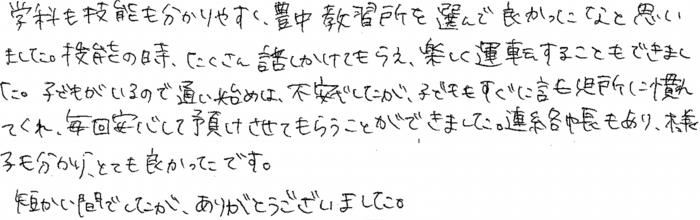 学科も技能も分かりやすく、豊中教習所を選んで良かったなと思い
ました。技能の時、たくさん話しかけてもらえ、楽しく運転することもできまし
た。子どもがいるので通い始めは、不安でしたが、子どももすぐに託児所に慣れ
てくれ、毎回安心して預けさせてもらうことができました。連絡帳もあり、様
子も分かり、とても良かったです。
短かい間でしたが、ありがとうございました。